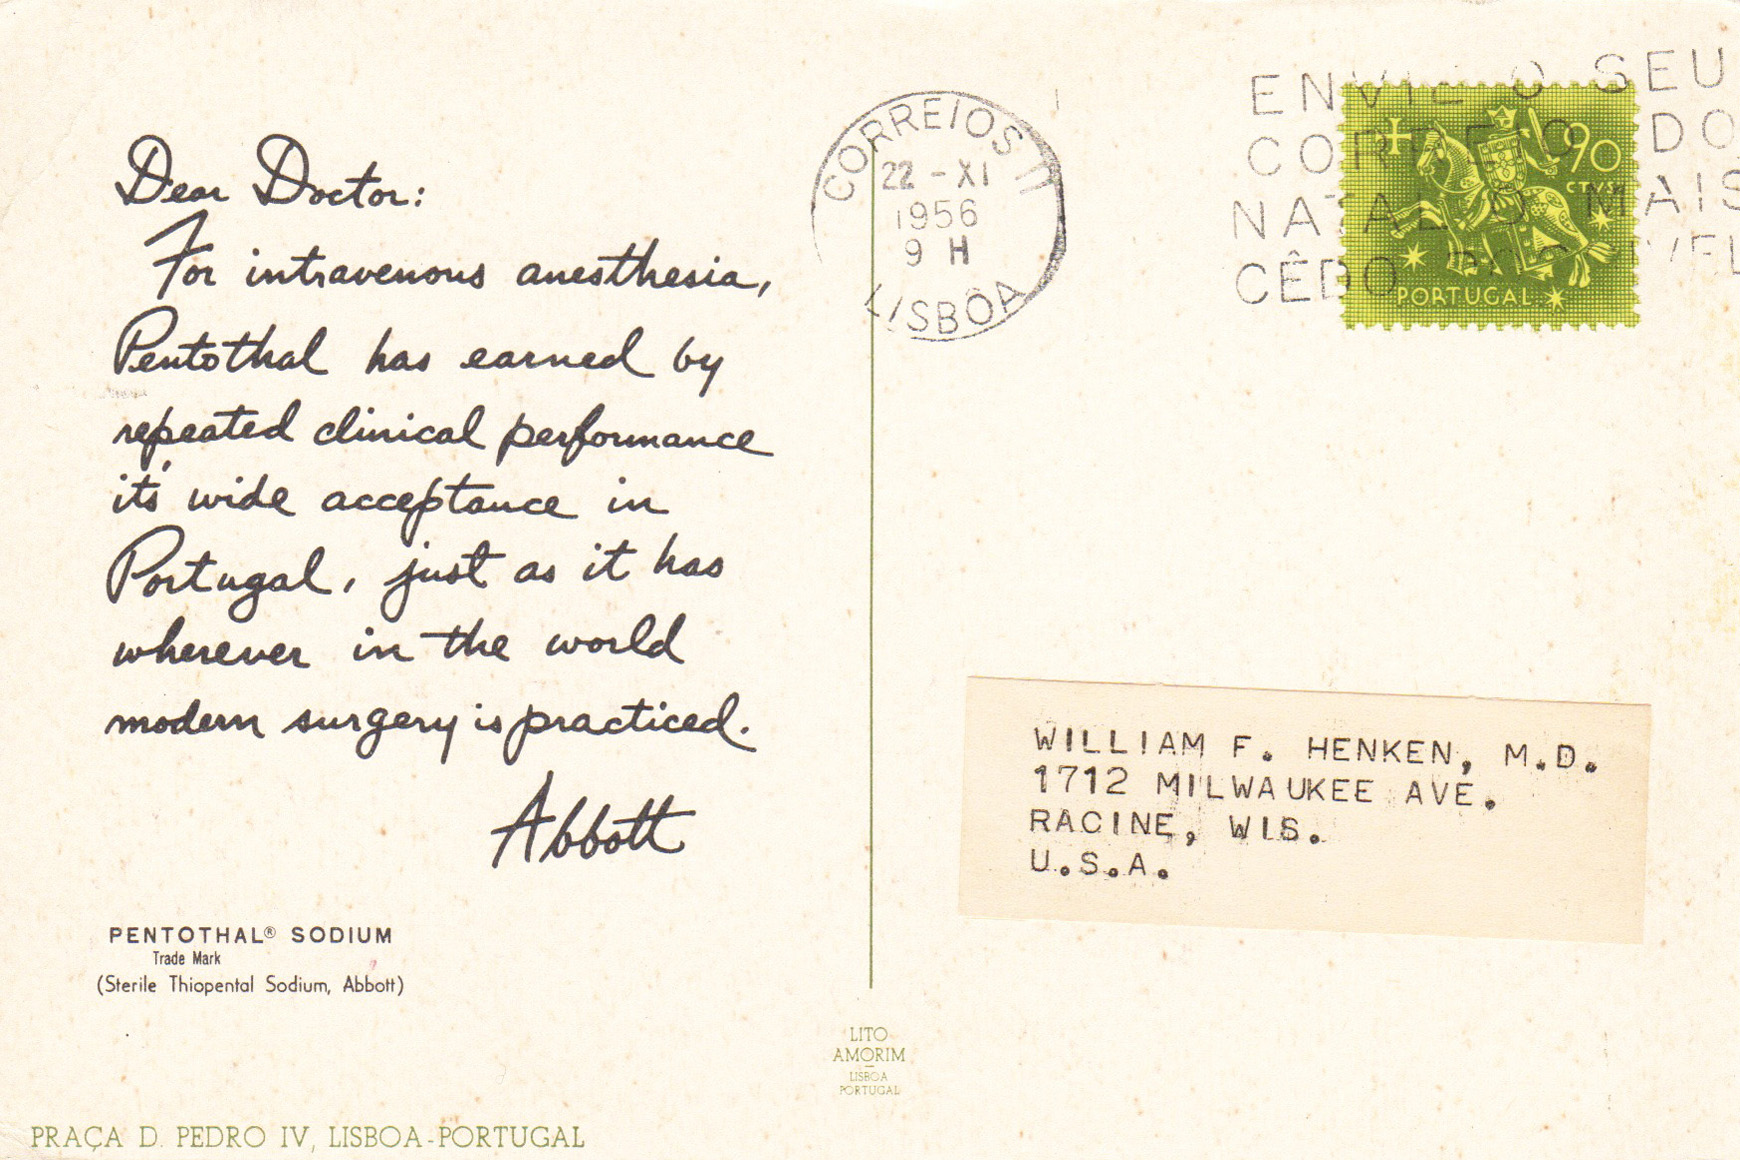 Dear Doctor:
For intravenous anesthesia,
Pentothal has earned by
repeated clinical performance
it's wide acceptance in
Portugal, just as it has
wherever in the world
modern surgery is practiced.
Abbott
PENTOTHAL® SODIUM
Trade Mark
(Sterile Thiopental Sodium, Abbott)
PRAÇA D. PEDRO IV, LISBOA-PORTUGAL
LITO
AMORIM
LISBOA
PORTUGAL
CORREIOS
22-XI
1956
9 H
LISBÔA
ENVIE O SEU
CORREIO DO
NATAL O MAIS
CÊDO
90
CTVS
PORTUGAL
WILLIAM F. HENKEN, M.D.
1712 MILWAUKEE AVE.
RACINE, WIS.
U.S.A.